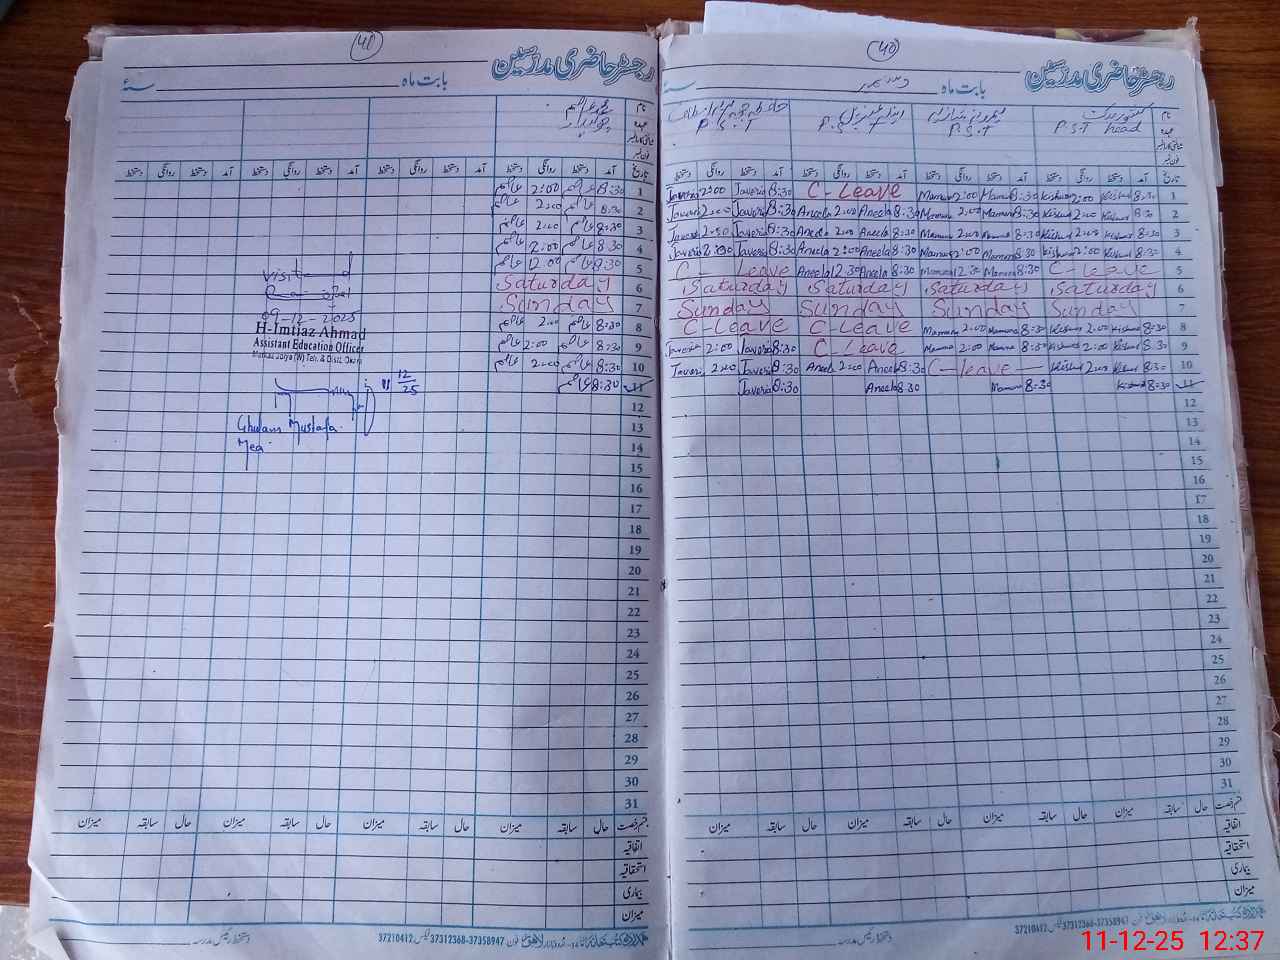 40
رجسٹر حاضری مدرسین
بابت ماہ دسمبر
نام
عہدہ
P.S.T head P.S.T P.S.T P.S.T
تاریخ آمد دستخط روانگی دستخط آمد دستخط روانگی دستخط آمد دستخط روانگی دستخط آمد دستخط روانگی دستخط
1 8:30 Kishwar 2:00 Kishwar 8:30 Mamona 2:00 Mamona C-Leave 8:30 Javeria 2:00 Javeria
2 8:30 Kishwar 2:00 Kishwar 8:30 Mamona 2:00 Mamona 8:30 Aneela 2:00 Aneela 8:30 Javeria 2:00 Javeria
3 8:30 Kishwar 2:00 Kishwar 8:30 Mamona 2:00 Mamona 8:30 Aneela 2:00 Aneela 8:30 Javeria Javeria
4 8:30 Kishwar 2:00 Kishwar 8:30 Mamona 2:00 Mamona 8:30 Aneela 2:00 Aneela 8:30 Javeria Javeria
5 C-Leave 8:30 Mamona 12:30 Mamona 8:30 Aneela 12:30 Aneela C-Leave
6 Saturday Saturday Saturday Saturday
7 Sunday Sunday Sunday Sunday
8 8:30 Kishwar 2:00 Kishwar 8:30 Mamona 2:00 Mamona C-Leave C-Leave
9 8:30 Kishwar 2:00 Kishwar 8:30 Mamona 2:00 Mamona C-Leave 8:30 Javeria 2:00 Javeria
10 8:30 Kishwar 2:00 Kishwar C-Leave 8:30 Aneela 2:00 Aneela 8:30 Javeria 2:00 Javeria
11 8:30 Kishwar 8:30 Mamona 8:30 Aneela 8:30 Javeria
12
13
14
15
16
17
18
19
20
21
22
23
24
25
26
27
28
29
30
31
قسم رخصت حال سابقہ میزان حال سابقہ میزان حال سابقہ میزان حال سابقہ میزان
اتفاقیہ
استحقاقیہ
بیماری
میزان
37210412 37312368-37358947
دستخط رئیس مدرسہ
41
رجسٹر حاضری مدرسین
بابت ماہ
نام
عہدہ
تاریخ آمد دستخط روانگی دستخط آمد دستخط روانگی دستخط آمد دستخط روانگی دستخط آمد دستخط روانگی دستخط
1 8:30 2:00
2 8:30 2:00
3 8:30 2:00
4 8:30 2:00
5 8:30 12:00
6 Saturday
7 Sunday
8 8:30 2:00
9 8:30 2:00
10 8:30 2:00
11 8:30
12
13
14
15
16
17
18
19
20
21
22
23
24
25
26
27
28
29
30
31
Visited
09-12-2025
H-Imtiaz Ahmad
Assistant Education Officer
11/12/25
Ghulam Mustafa
Mea
قسم رخصت حال سابقہ میزان حال سابقہ میزان حال سابقہ میزان حال سابقہ میزان
اتفاقیہ
استحقاقیہ
بیماری
میزان
37210412 37312368-37358947
دستخط رئیس مدرسہ
11-12-25 12:37